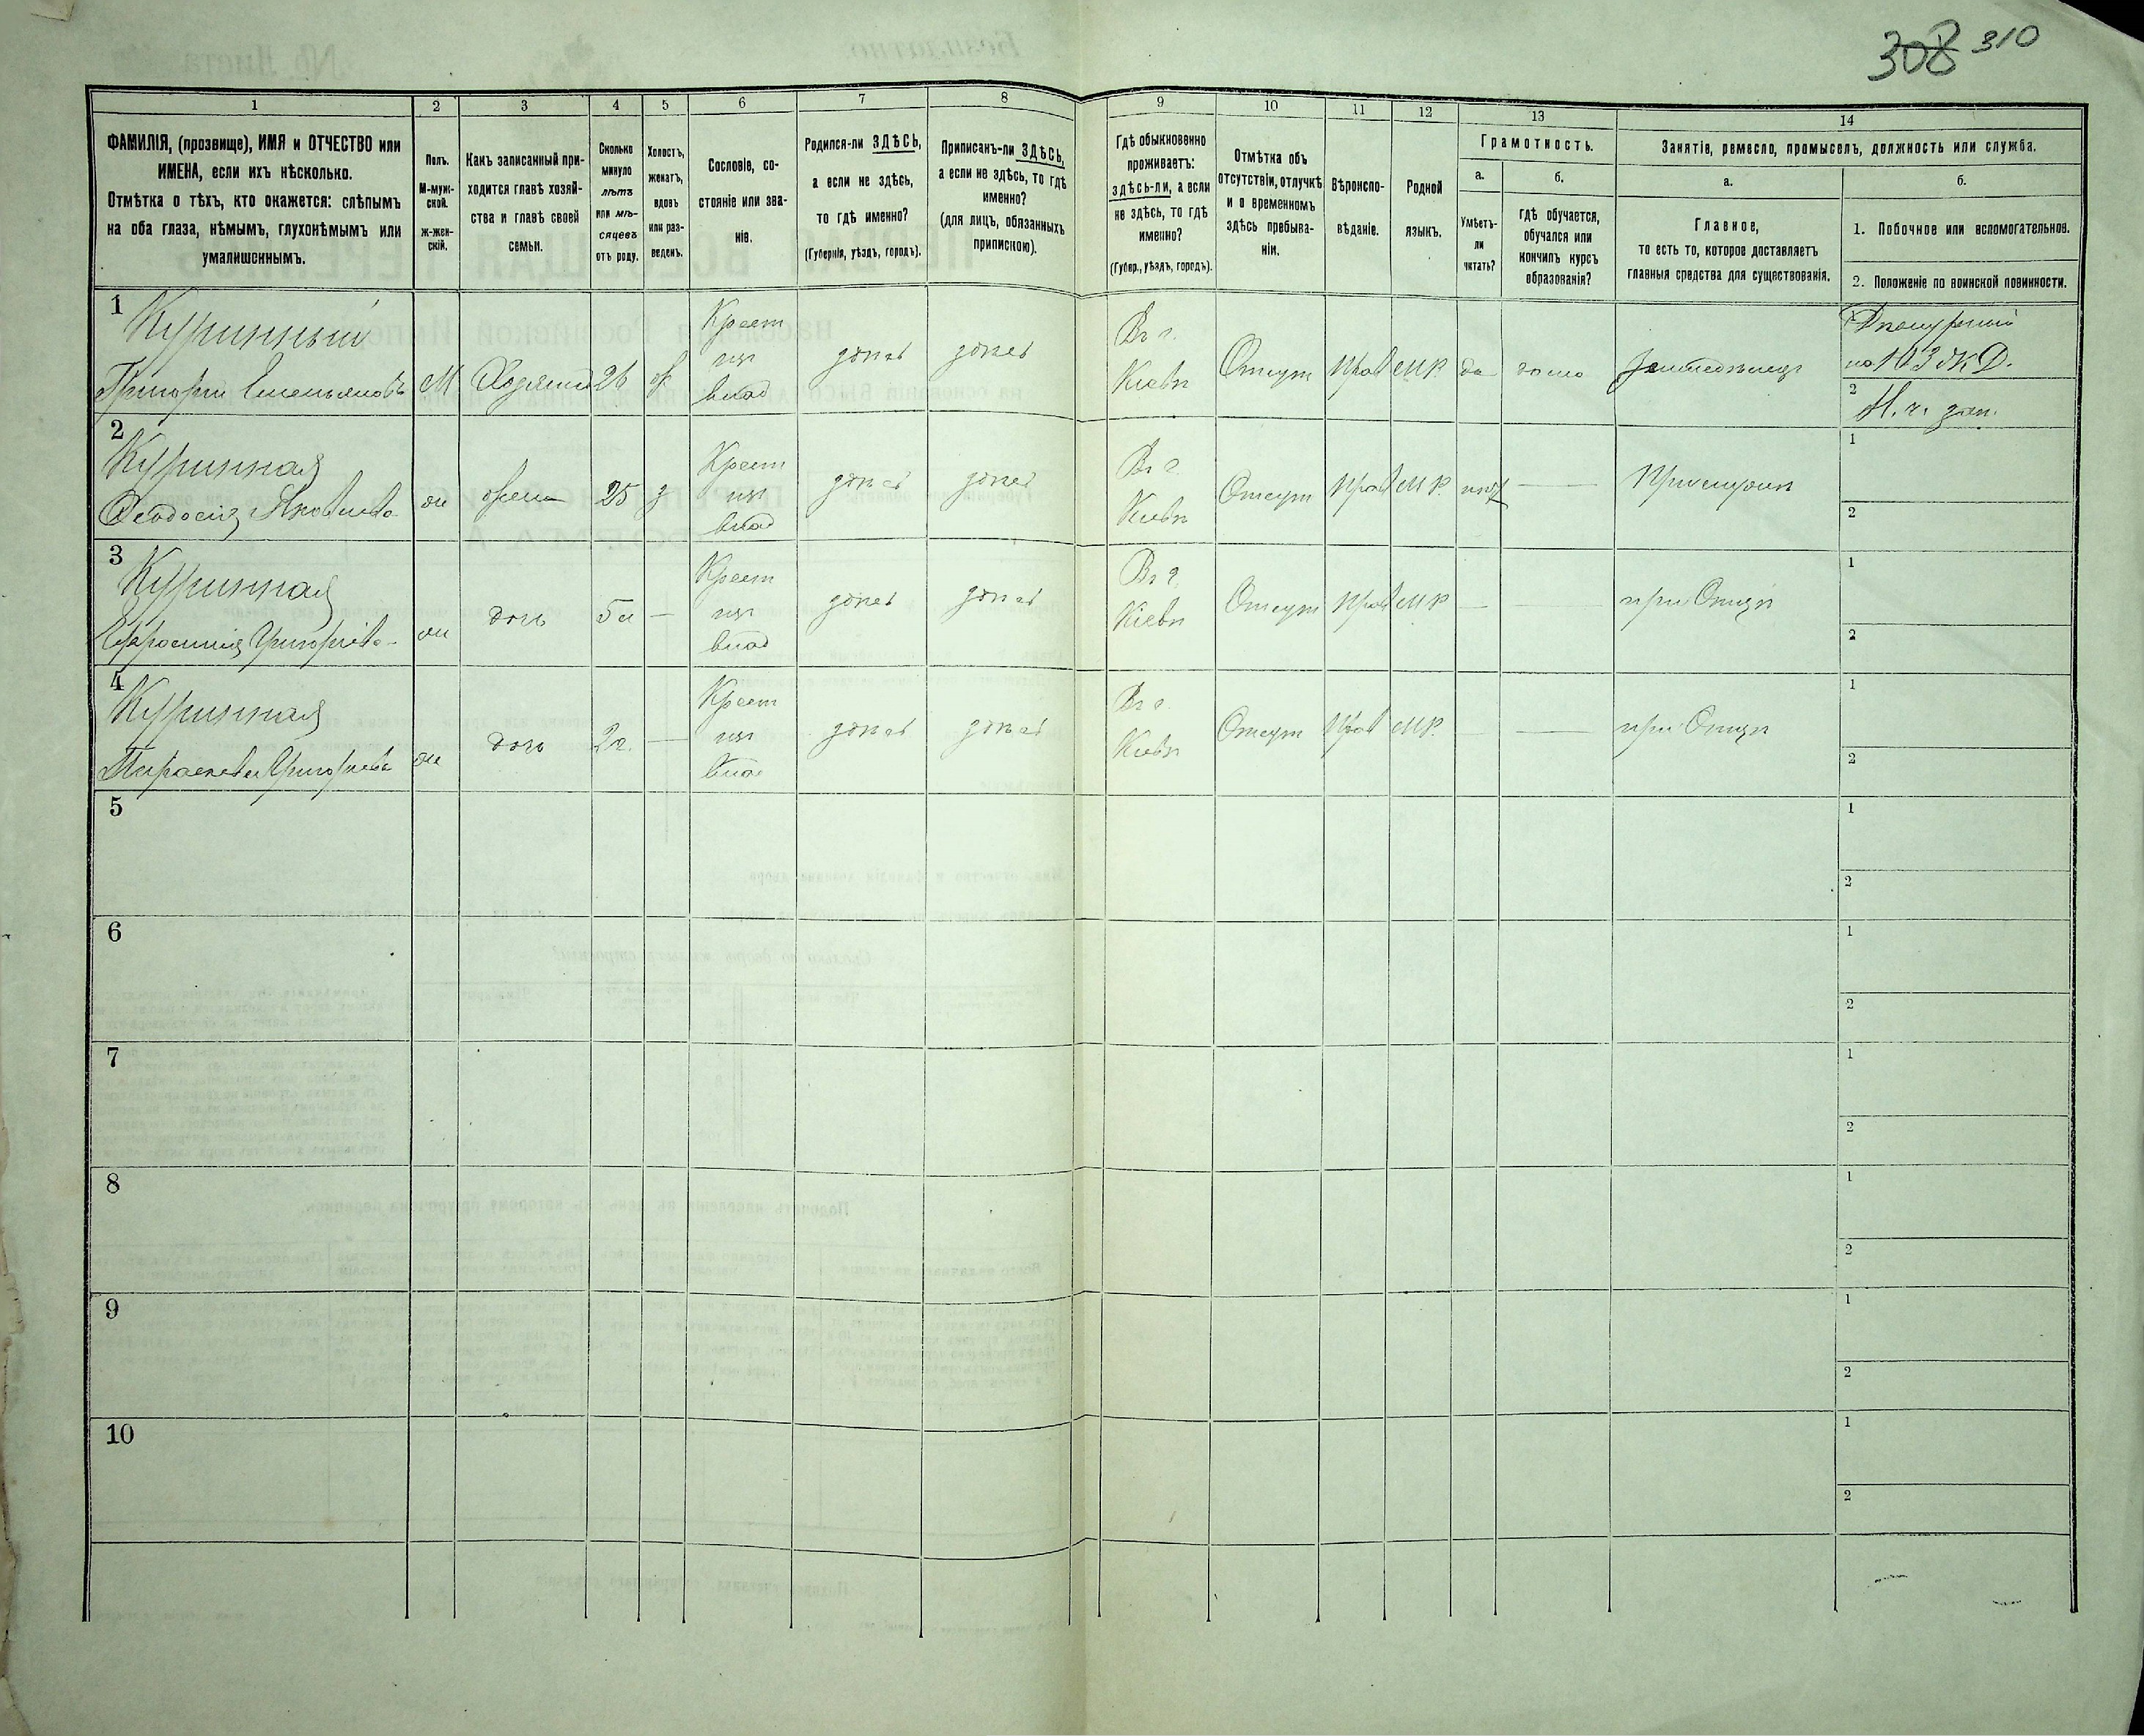 308 310
1 2 3 4 5 6 7 8 9 10 11 12 13 14
ФАМИЛІЯ, (прозвище), ИМЯ и ОТЧЕСТВО или
ИМЕНА, если ихъ нѣсколько.
Отмѣтка о тѣхъ, кто окажется: слѣпымъ
на оба глаза, нѣмымъ, глухонѣмымъ или
умалишеннымъ.
Полъ.
М-муж-
ской.
ж-жен-
скій.
Какъ записанный при-
ходится главѣ хозяй-
ства и главѣ своей
семьи.
Сколько
минуло
лѣтъ
или мѣ-
сяцевъ
отъ роду.
Холостъ,
женатъ,
вдовъ
или раз-
веденъ.
Сословіе, со-
стояніе или зва-
ніе.
Родился-ли ЗДѢСЬ,
а если не здѣсь,
то гдѣ именно?
(Губернія, уѣздъ, городъ).
Приписанъ-ли ЗДѢСЬ,
а если не здѣсь, то гдѣ
именно?
(для лицъ, обязанныхъ
припискою).
Гдѣ обыкновенно
проживаетъ:
здѣсь-ли, а если
не здѣсь, то гдѣ
именно?
(Губер., уѣздъ, городъ).
Отмѣтка объ
отсутствіи, отлучкѣ
и о временномъ
здѣсь пребыва-
ніи.
Вѣроиспо-
вѣданіе.
Родной
языкъ.
Грамотность.
а.
Умѣетъ-
ли
читать?
б.
гдѣ обучается,
обучался или
кончилъ курсъ
образованія?
Занятіе, ремесло, промыселъ, должность или служба.
а.
Главное,
то есть то, которое доставляетъ
главныя средства для существованія.
б.
1. Побочное или вспомогательное.
2. Положеніе по воинской повинности.
1 Куринный
Григорій Емельяновъ М Хозяинъ 26 ж Крест из влад здѣсь здѣсь Въ г. Кіевѣ Отсут Прав МР. да дома Земледѣлецъ
на ЮЗЖД.
2
2 Куринная
Феодосія Яковлева ж жена 25 з Крест из влад здѣсь здѣсь Въ г. Кіевѣ Отсут Прав МР. нѣт — При мужѣ
1
2
3 Куринная
Ефросинія Григоріева ж дочь 5 л — Крест из влад здѣсь здѣсь Въ г. Кіевѣ Отсут Прав МР — — при Отцѣ
1
2
4 Куринная
Параскева Григоріева ж дочь 2 г. — Крест из влад здѣсь здѣсь Въ г. Кіевѣ Отсут Прав МР. — — при Отцѣ
1
2
5
1
2
6
1
2
7
1
2
8
1
2
9
1
2
10
1
2